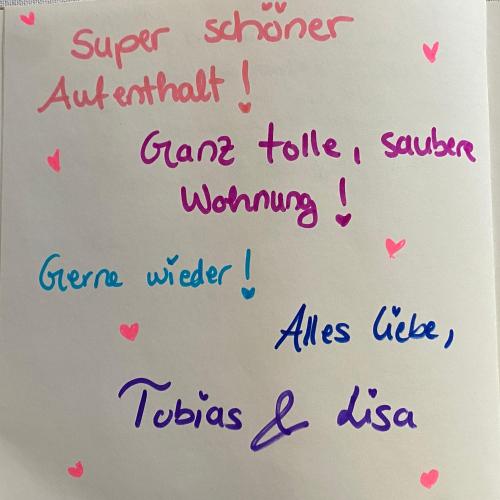 Super schöner
Aufenthalt!
Ganz tolle, saubere
Wohnung!
Gerne wieder!
Alles Liebe,
Tobias & Lisa